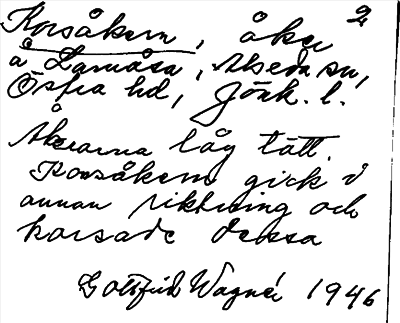 Korsåkern, åker 2
å Lamåsa, Alseda sn,
Östra hd, Jönk. l.
Åkrarna låg tätt.
Korsåkern gick i
annan riktning och
korsade dessa
Gottfrid Wagnér 1946